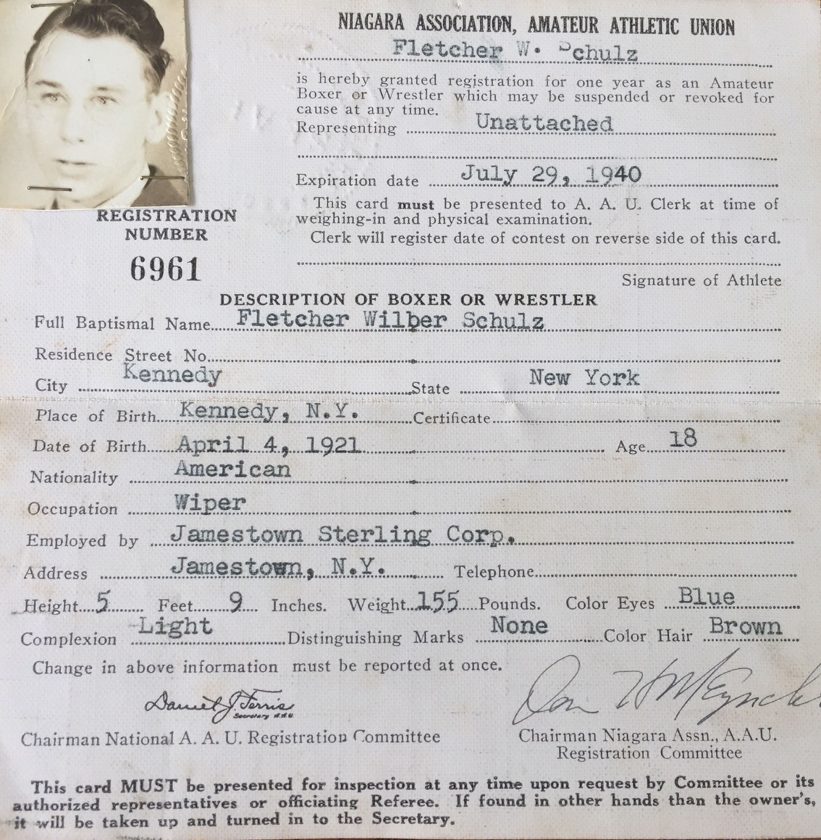 NIAGARA ASSOCIATION, AMATEUR ATHLETIC UNION
Fletcher W. Schulz
is hereby granted registration for one year as an Amateur
Boxer or Wrestler which may be suspended or revoked for
cause at any time.
Representing Unattached
Expiration date July 29, 1940
This card must be presented to A. A. U. Clerk at time of
weighing-in and physical examination.
Clerk will register date of contest on reverse side of this card.
Signature of Athlete
REGISTRATION
NUMBER
6961
DESCRIPTION OF BOXER OR WRESTLER
Full Baptismal Name Fletcher Wilber Schulz
Residence Street No.
City Kennedy State New York
Place of Birth Kennedy, N.Y. Certificate
Date of Birth April 4, 1921 Age 18
Nationality American
Occupation Wiper
Employed by Jamestown Sterling Corp.
Address Jamestown, N.Y. Telephone
Height 5 Feet 9 Inches. Weight 155 Pounds. Color Eyes Blue
Complexion Light Distinguishing Marks None Color Hair Brown
Change in above information must be reported at once.
Daniel J. Ferris
Secretary A.A.U.
Chairman National A. A. U. Registration Committee
Chairman Niagara Assn., A.A.U.
Registration Committee
This card MUST be presented for inspection at any time upon request by Committee or its
authorized representatives or officiating Referee. If found in other hands than the owner's,
it will be taken up and turned in to the Secretary.